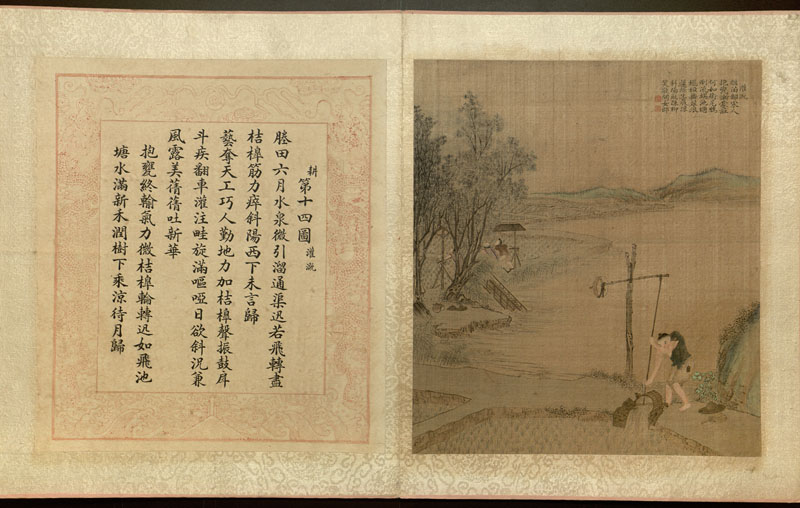 耕 第十四圖 灌溉
塍田六月水泉微引溜通渠迅若飛轉盡
桔槔筋力瘁斜陽西下未言歸
藝奪天工巧人勤地力加桔槔聲振鼓戽
斗疾翻車灌注畦旋滿嘔啞日欲斜況兼
風露美蒨蒨吐新華
抱甕終輸氣力微桔槔輪轉迅如飛池
塘水滿新禾潤樹下乘涼待月歸
灌溉
揠苗鄙宋人
抱甕慚蒙莊
何如銜尾鴉
倒流竭池塘